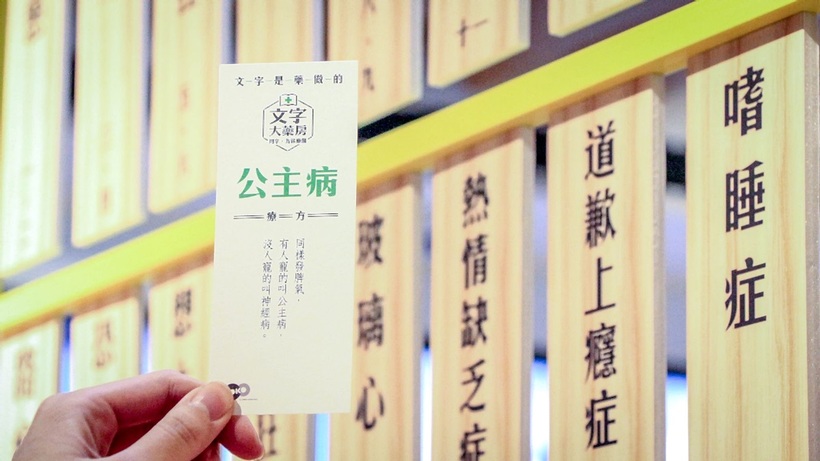 文字是藥做的
文字
大藥房
公主病
療方
同樣發脾氣，
有人寵的叫公主病，
沒人寵的叫神經病。
玻璃心
熱情缺乏症
道歉上癮症
嗜睡症